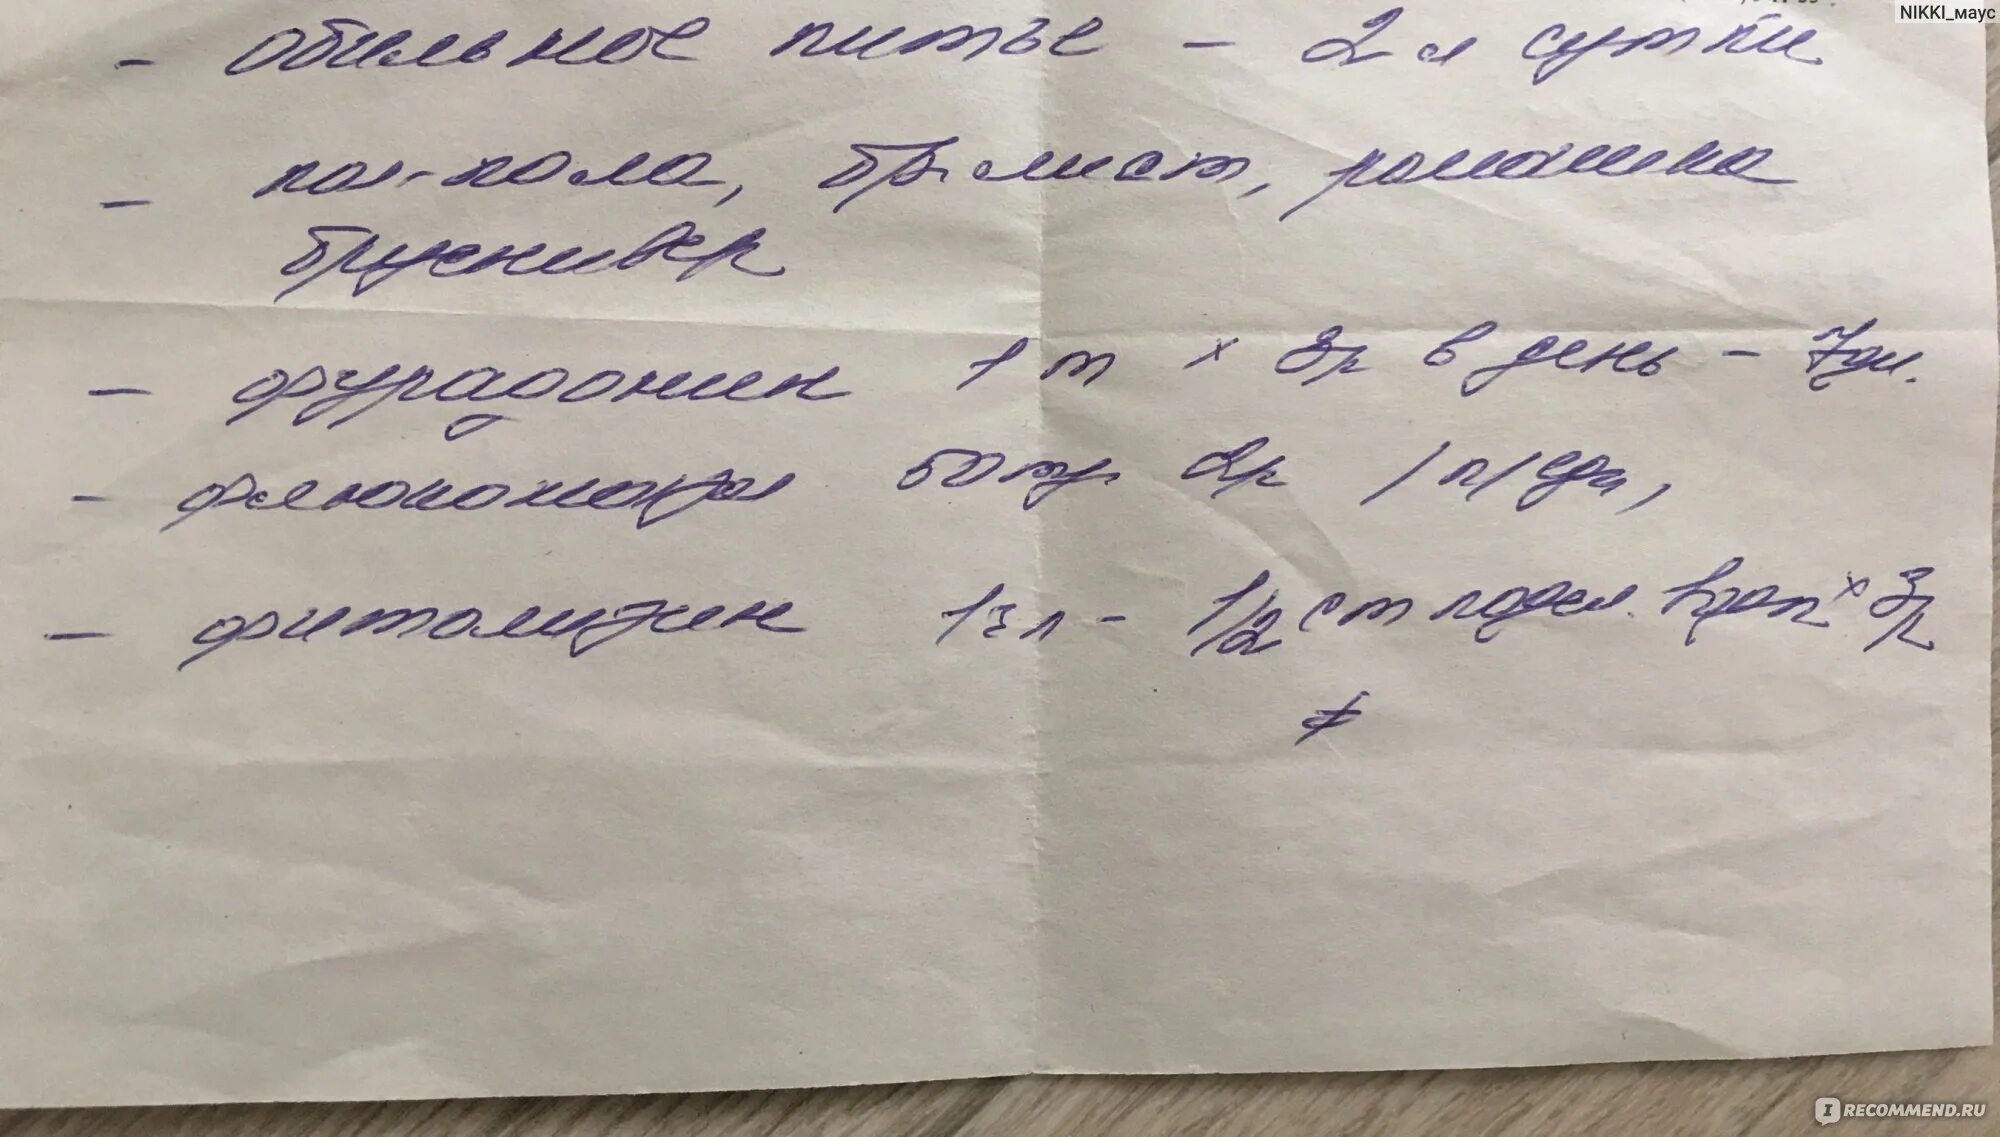 NIKKI_маус
- Обильное питье - 2 л сутки
- пол-пола, бр. лист, ромашка
бруснивер
- фурадонин 1 т × 3р в день - 7дн.
- флюконазол 50мг 2р /п/еды,
- фитолизин 1 чл - 1/2 ст подсл. × 3р
RECOMMEND.RU